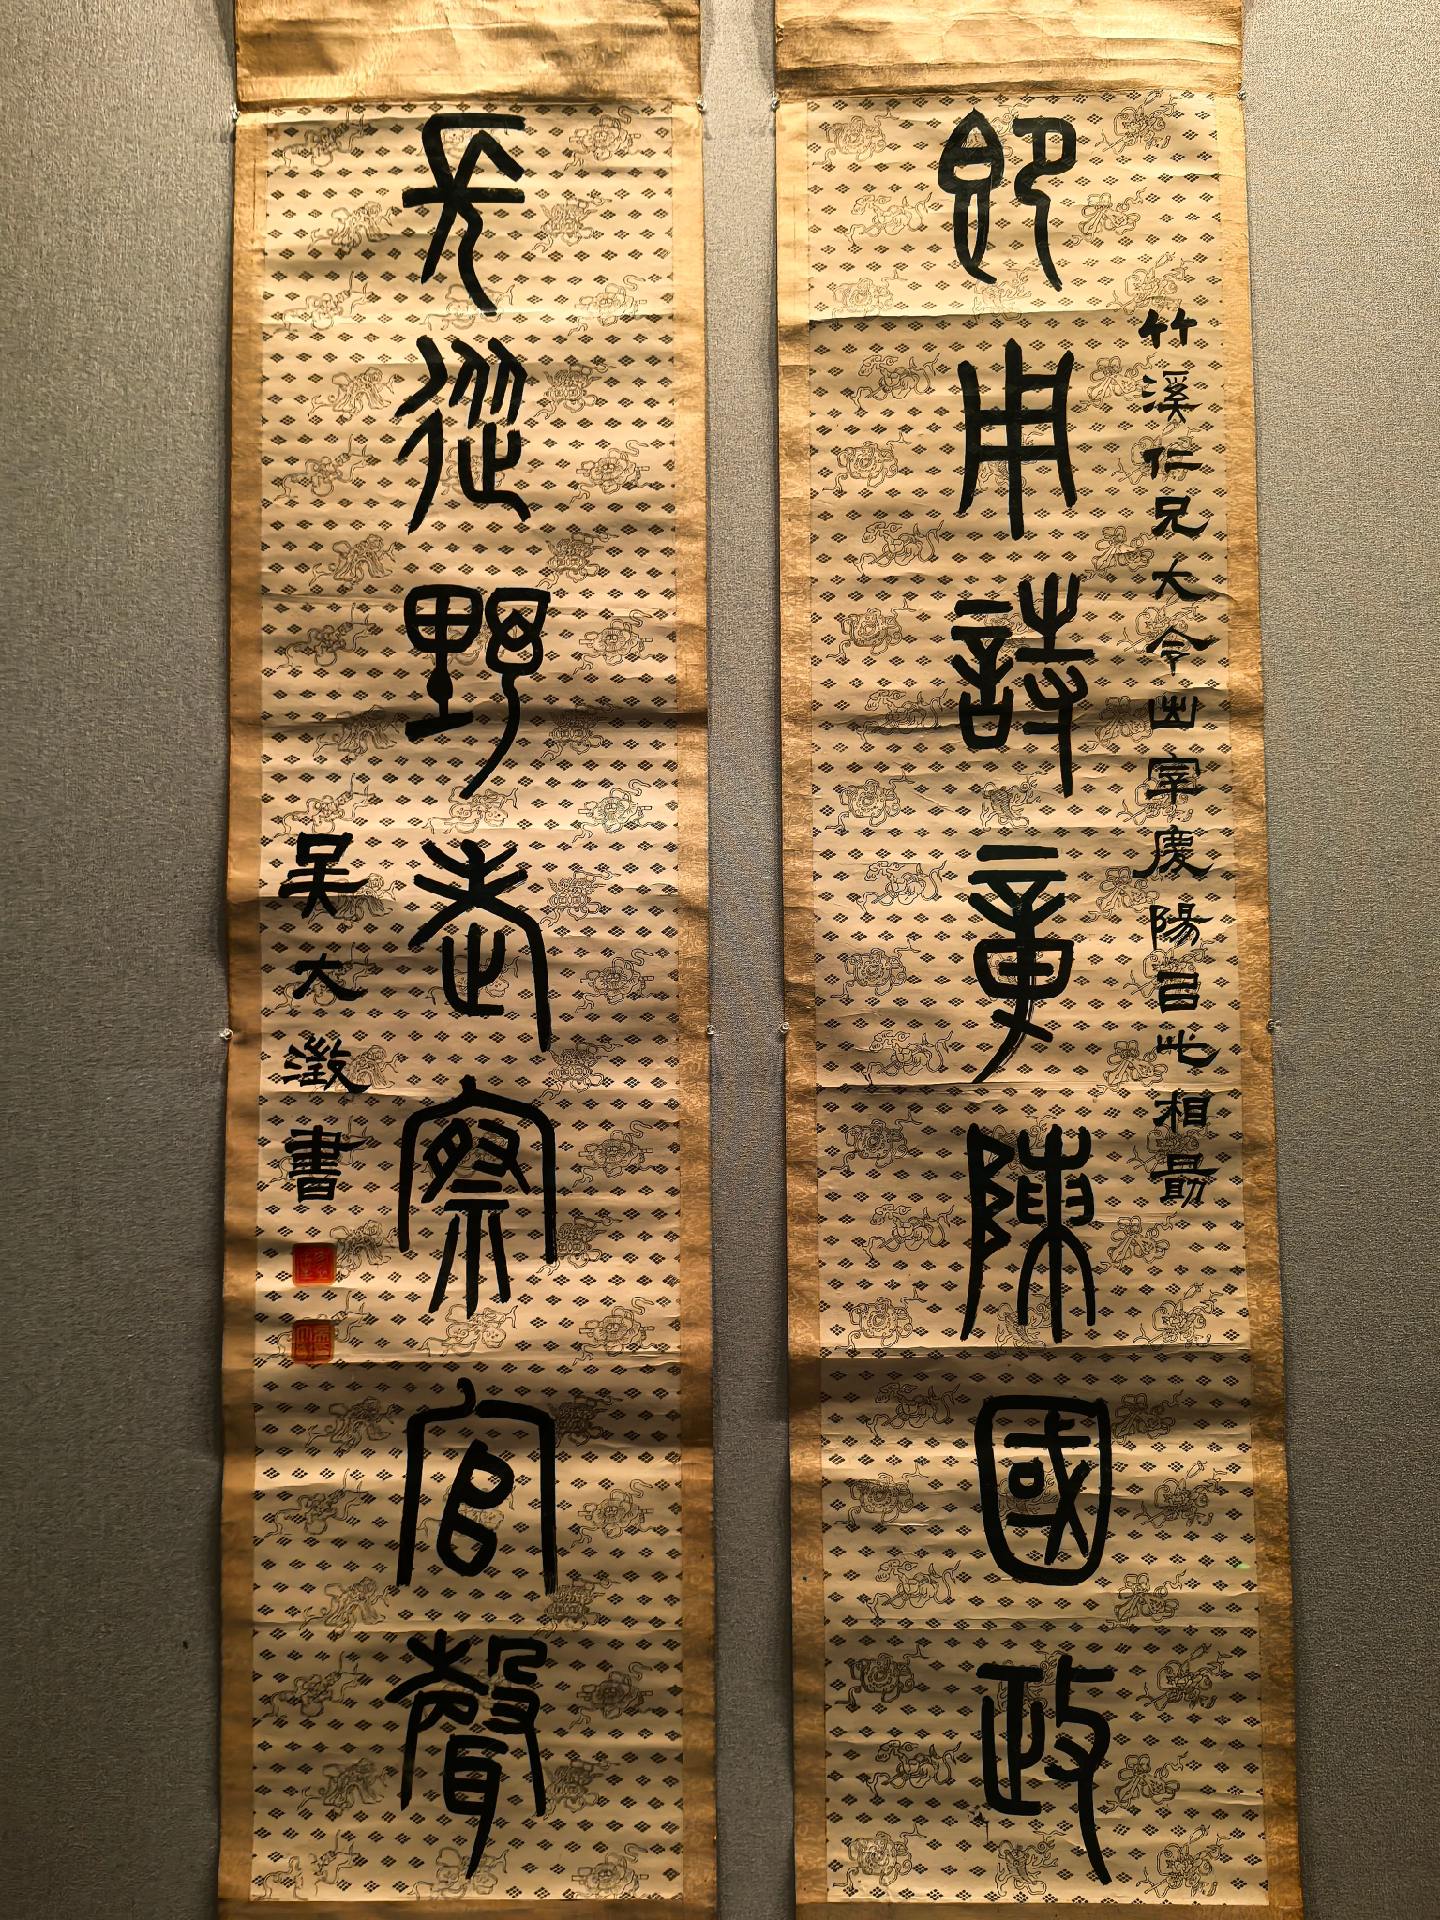 即用詩章陳國政
竹溪仁兄大令出宰慶陽㠯此相勗
長從野老察官聲
吳大澂書